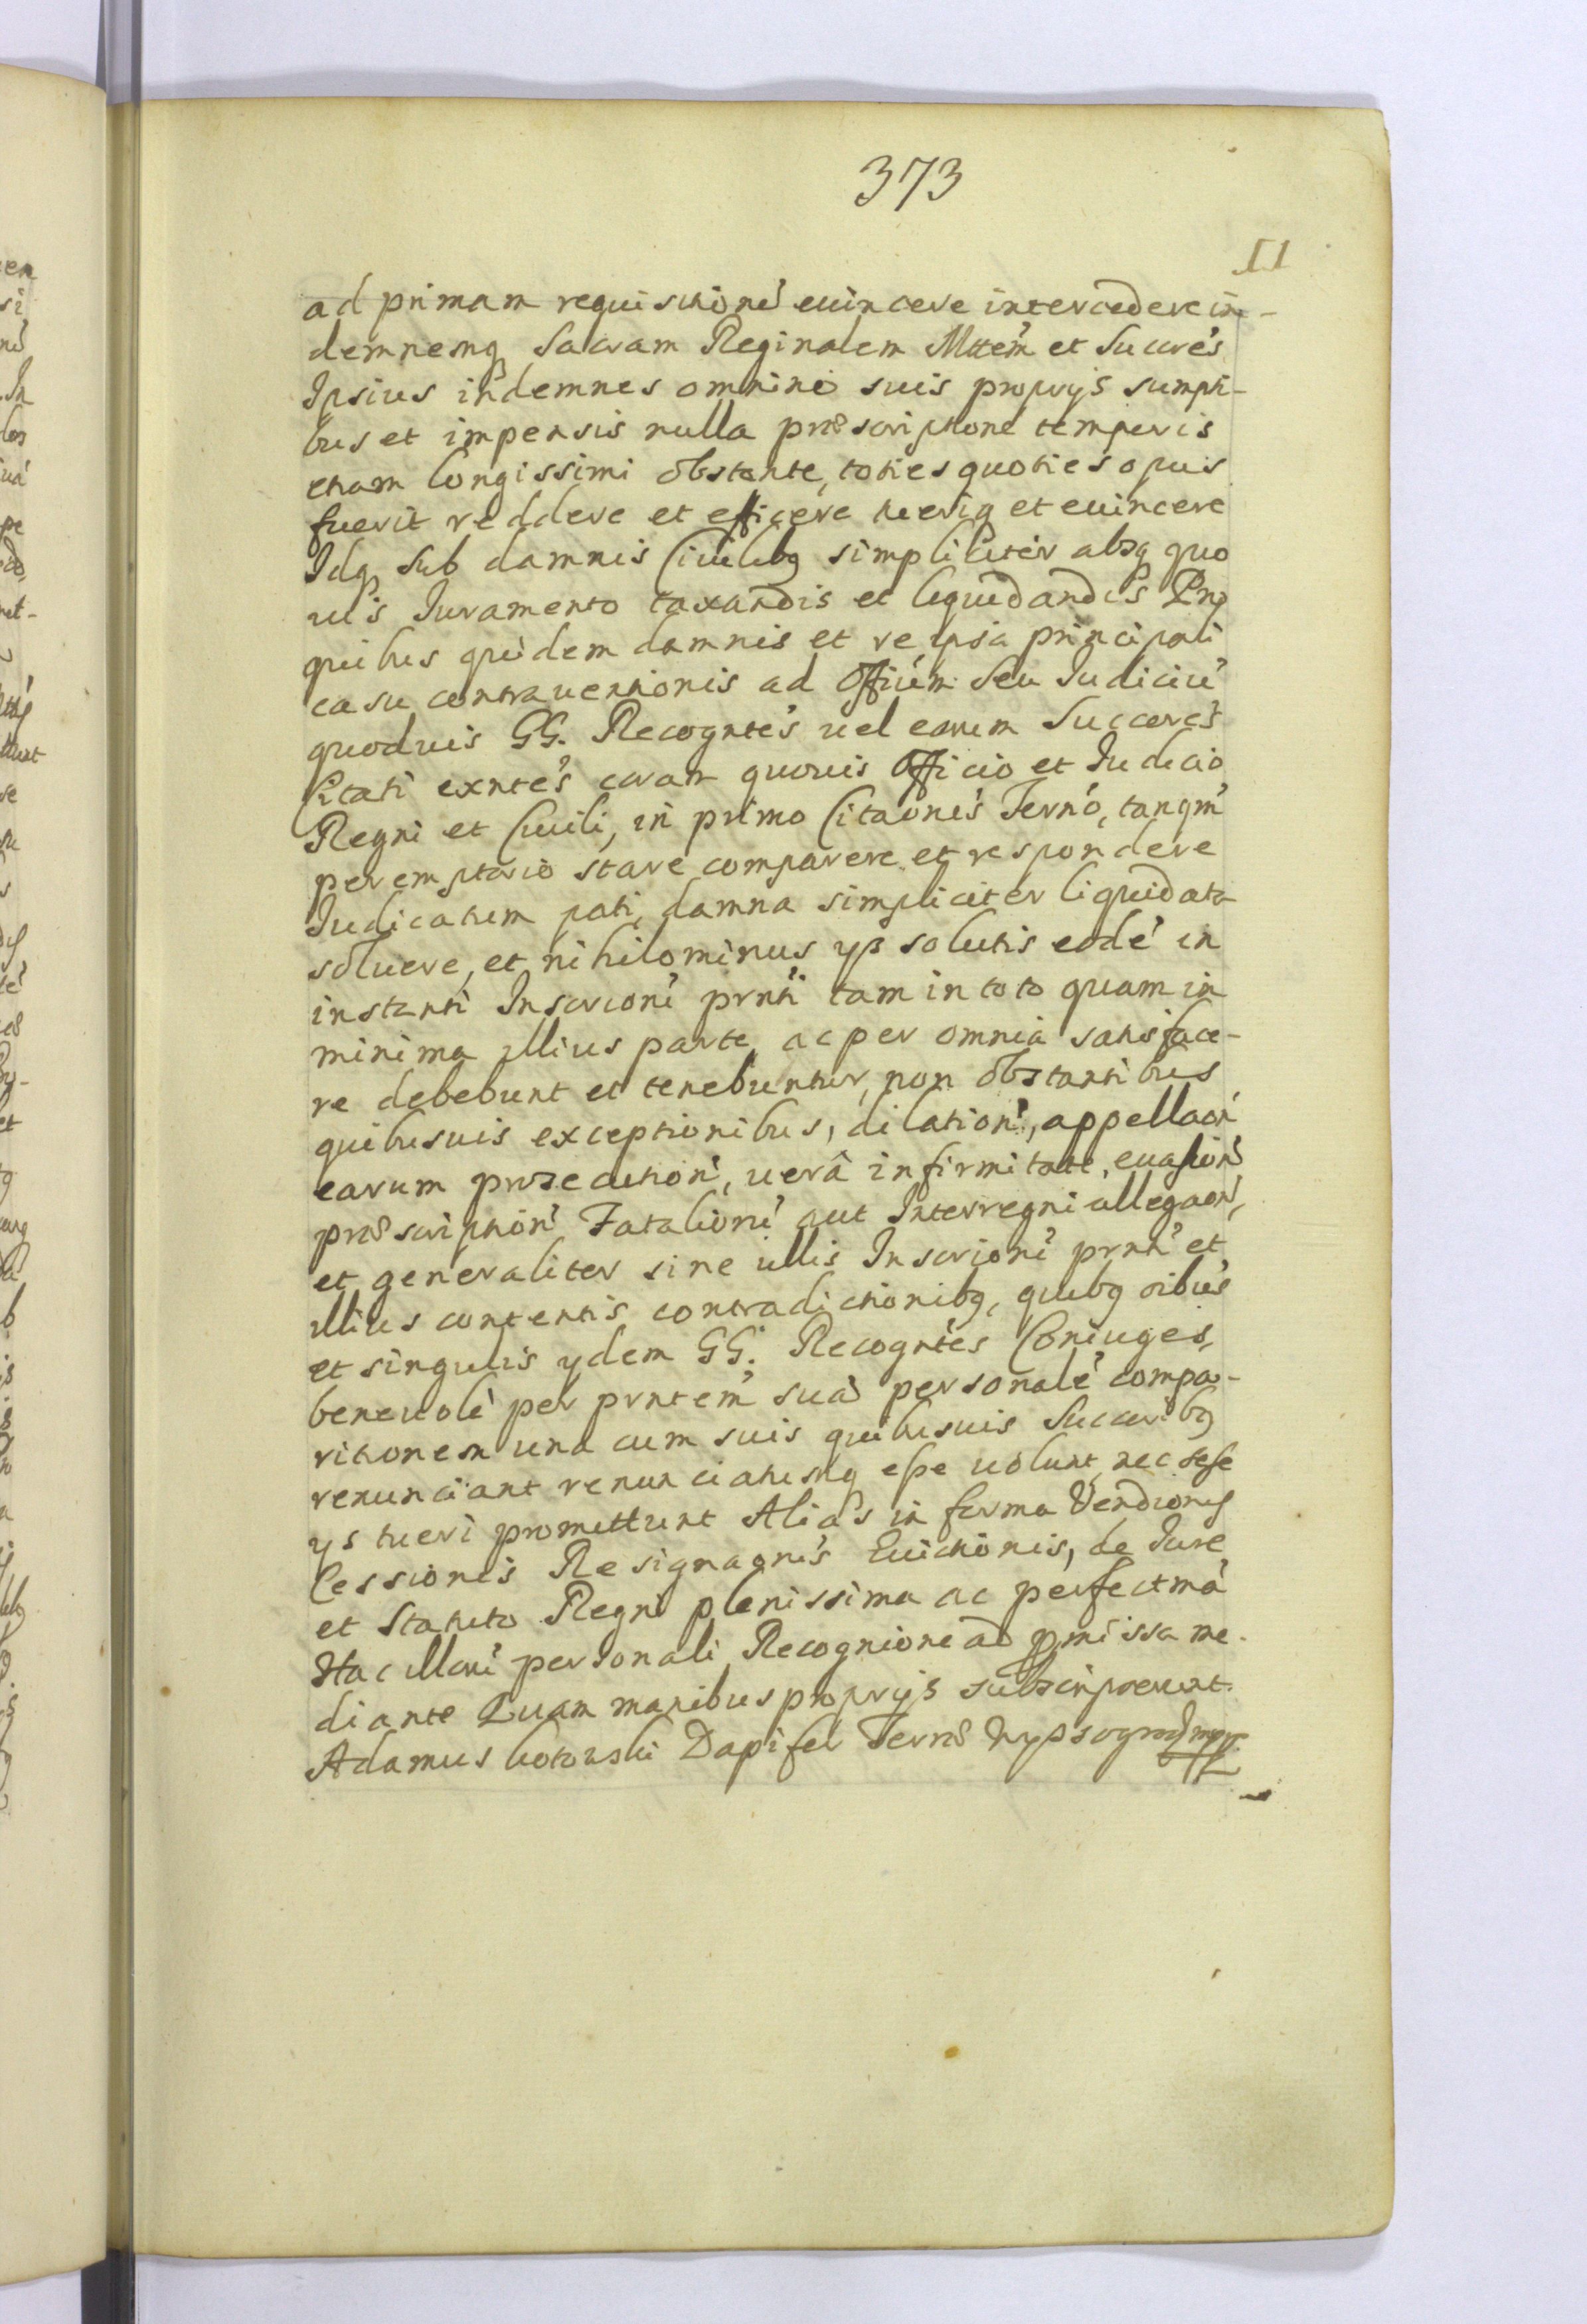 373
11
ad primam requisitioné euincere intercedere in-
demnemq Sacram Reginalem Mttem et Succres
Ipsius indemnes omnino suis proprijs sumpti-
bus et impensis nulla præscriptione temporis
etiam longissimi obstante, toties quoties opus
fuerit reddere et efficere tueriq et euincere
Idq sub damnis Ciuilibq simpliciter absq quo
uis Iuramento taxandis et liquidandis Pro
quibus quidem damnis et re ipsa principali
casu contrauentionis ad Offium seu Iudiciú
quoduis GG. Recogntes uel eorum Succores
Citati exntes coram quouis Officio et Iudicio
Regni et Ciuili, in primo Citaonis Terno, tanqm
peremptorio stare comparere et respondere
Iudicatum pati, damna simpliciter liquidata
soluere, et nihilominus ys solutis eodé in
instanti Inscrioni prnti tam in toto quam in
minima illius parte, ac per omnia satisface-
re debebunt et tenebuntur, non obstantibus
quibusuis exceptionibus, dilation, appellaon
earum prosecution, uerâ infirmitate, euasion
præscription Fatalioni aut Interregni allegaon,
et generaliter sine ullis Inscrioni prnti et
illius contentis contradictionibq, quibq oibus
et singulis ydem GG. Recogntes Coniuges,
beneuolè per prntem suá personalé compa-
ritionem una cum suis quibusuis Succoribq
renunciant renunciatumq esse uolunt, nec sese
ys tueri promittunt Alias in forma Vendionis
Cessionis Resignaonis Euictionis, de Iure
et Statuto Regni plenissima ac perfectma
Hac illorú personali Recognione ad prmissa me-
diante Quam manibus proprijs subscripserunt.
Adamus Kotowski Dapifer Terræ Wyssogrod mpp